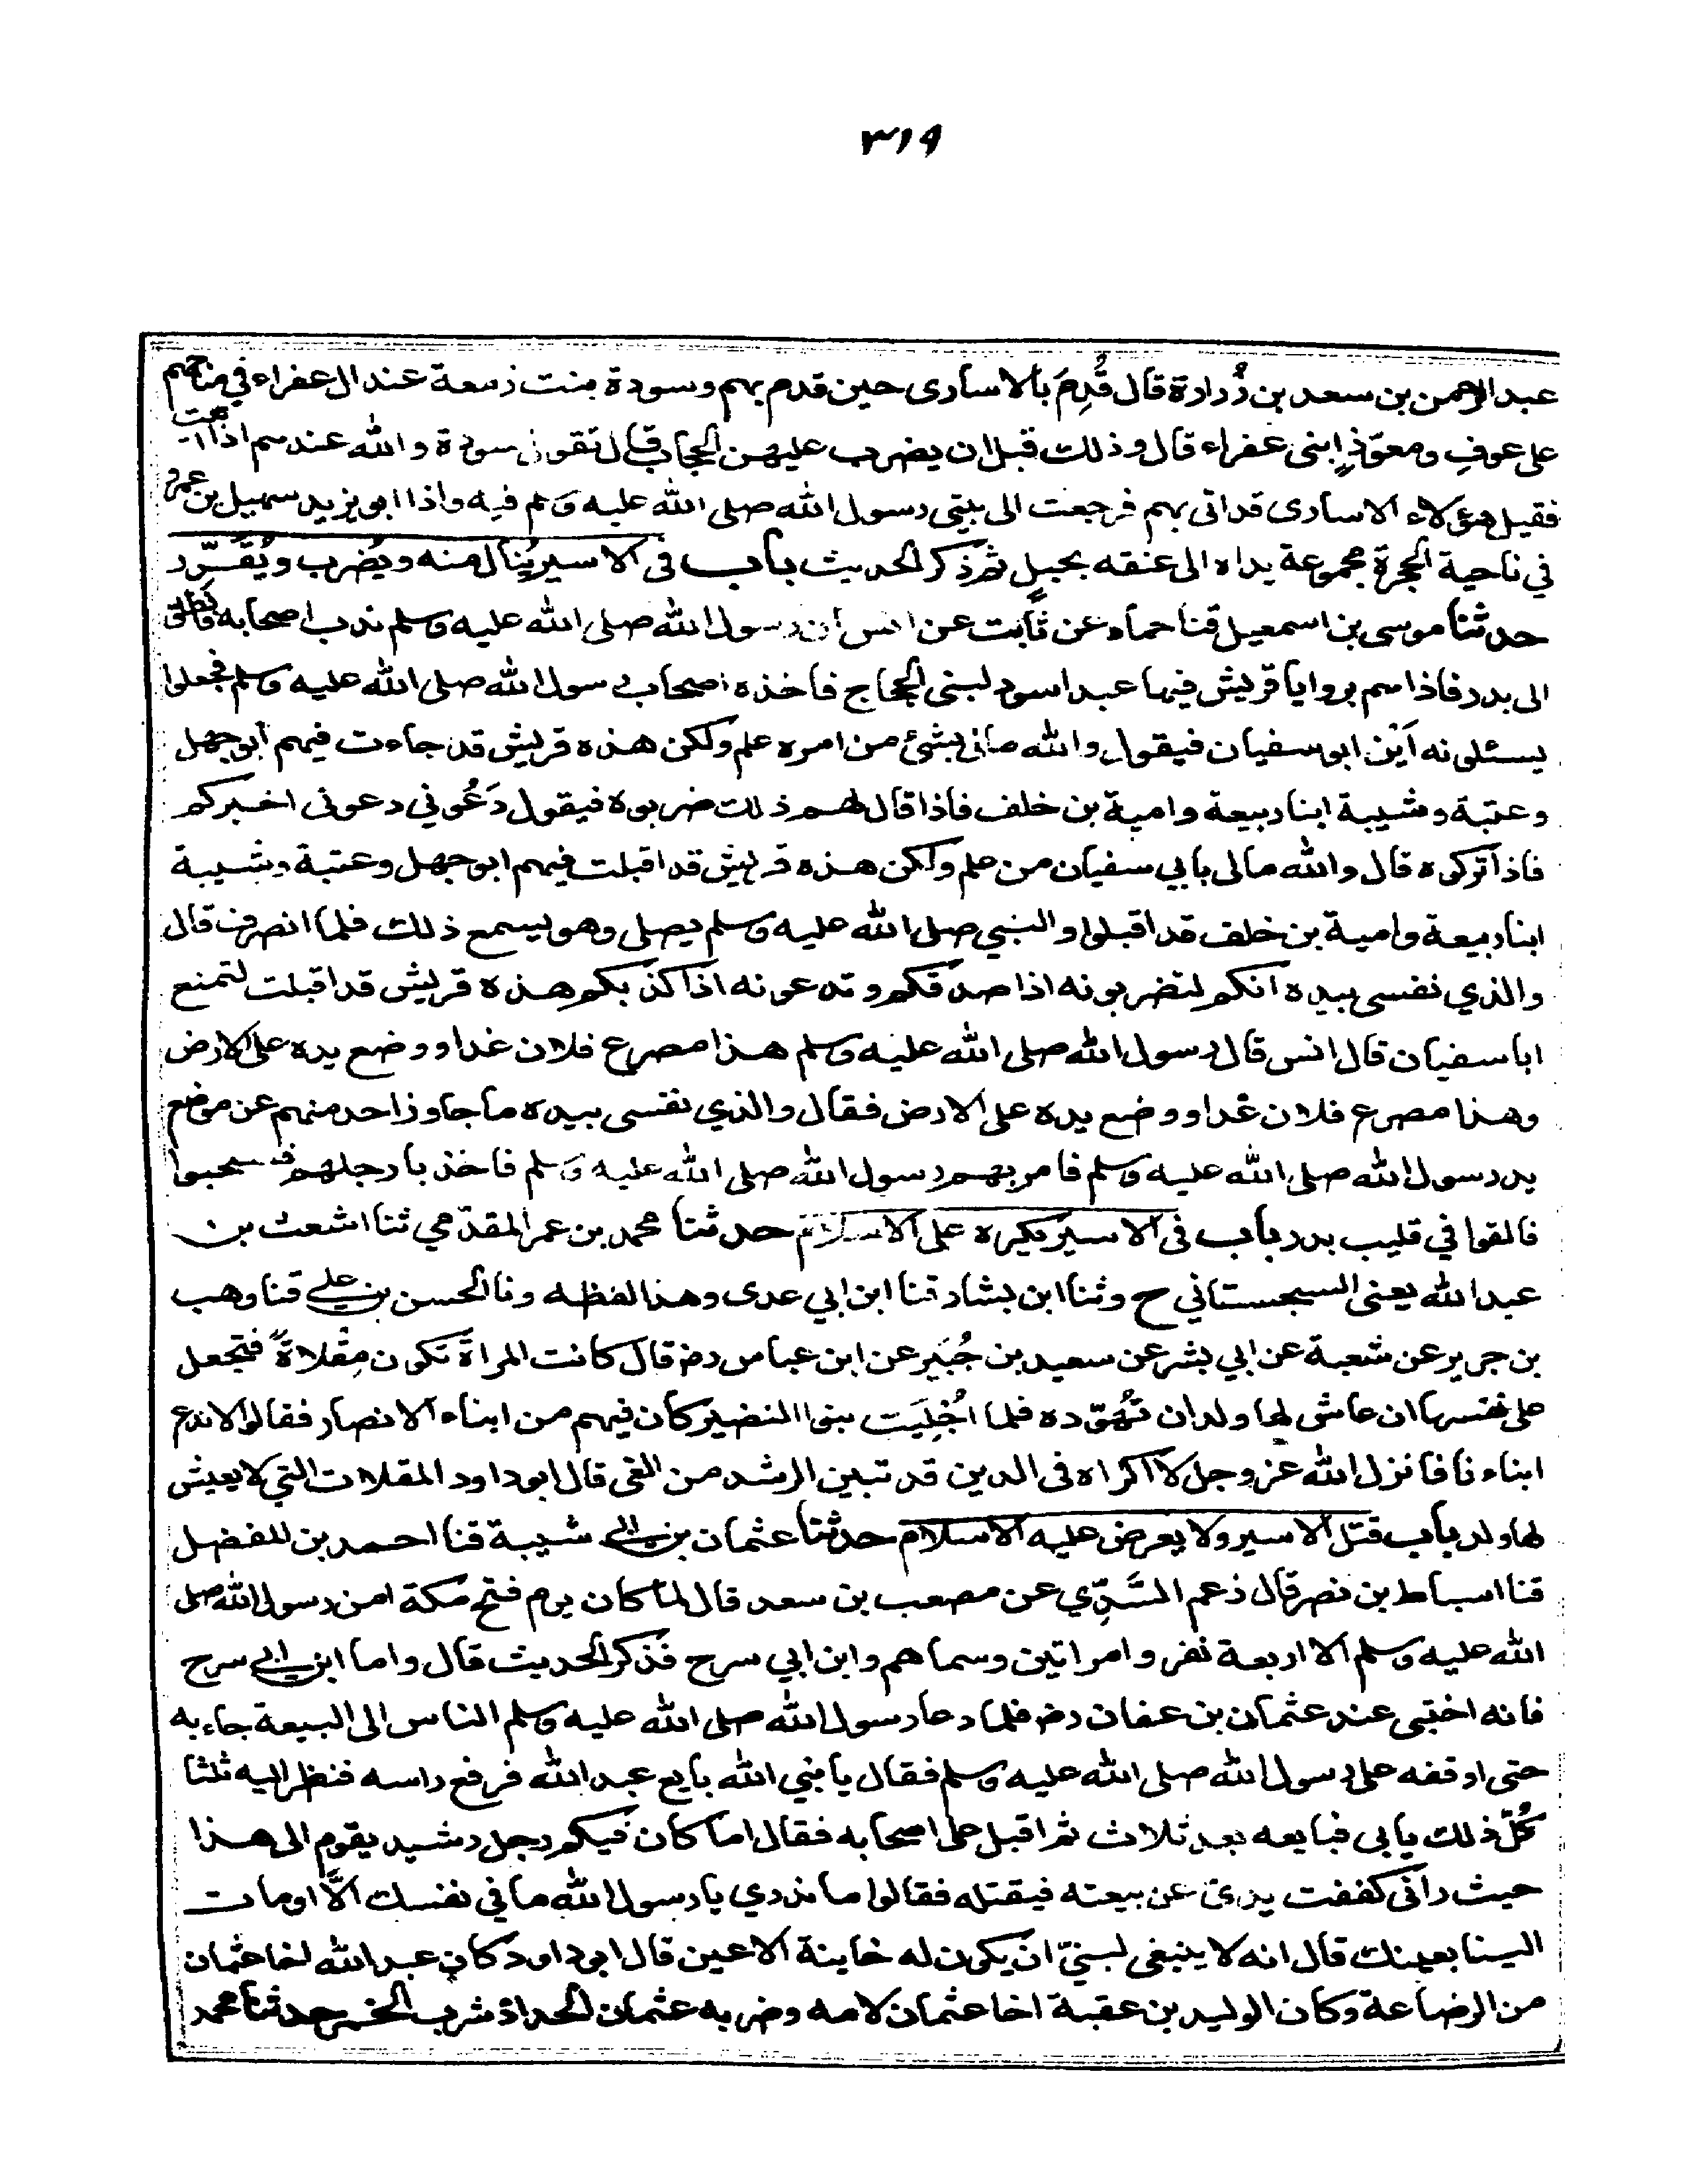 ٣١٩
عبد الرحمن بن سعد بن زُرارة قال قُدِمَ بالاسارى حين قدم بهم وسودة بنت زمعة عند ال عفراء في مناحهم
على عوفٍ ومعوّذٍ ابنى عفراء قال وذلك قبل ان يضرب عليهن الحجاب قال تقول سودة والله عندهم اذ اتيت
فقيل هؤلاء الاسارى قد اتى بهم فرجعت الى بيتى رسول الله صلى الله عليه وسلم فيه واذا ابو يزيد سهيل بن عمرو
في ناحية الحجرة مجموعة يداه الى عنقه بحبلٍ ثم ذكر الحديث باب فى الاسير يُنال منه ويُضرب ويُقَرّر
حدثنا موسى بن اسمعيل قنا حماد عن ثابت عن انس ان رسول الله صلى الله عليه وسلم ندب اصحابه فانطلق
الى بدر فاذا هم بروايا قريش فيها عبد اسود لبنى الحجاج فاخذه اصحاب رسول الله صلى الله عليه وسلم فجعلوا
يسئلونه اَيْن ابو سفيان فيقول والله مالى بشئ من امره علم ولكن هذه قريش قد جاءت فيهم ابو جهل
وعتبة وشيبة ابنا ربيعة وامية بن خلف فاذا قال لهم ذلك ضربوه فيقول دَعُوني دعونى اخبركم
فاذا تركوه قال والله مالى بابي سفيان من علم ولكن هذه قريش قد اقبلت فيهم ابو جهل وعتبة وشيبة
ابنا ربيعة وامية بن خلف قد اقبلوا والنبي صلى الله عليه وسلم يصلى وهو يسمع ذلك فلما انصرف قال
والذي نفسى بيده انكم لتضربونه اذا صدقكم وتدعونه اذا كذبكم هذه قريش قد اقبلت لتمنع
ابا سفيان قال انس قال رسول الله صلى الله عليه وسلم هذا مصرع فلان غدا ووضع يده على الارض
وهذا مصرع فلان غدا ووضع يده على الارض فقال والذي نفسى بيده ما جاوز احد منهم عن موضع
يد رسول الله صلى الله عليه وسلم فامر بهم رسول الله صلى الله عليه وسلم فاخذ بارجلهم فسحبوا
فالقوا في قليب بدر باب فى الاسير يكره على الاسلام حدثنا محمد بن عمر المقدّمي ثنا اشعث بن
عبد الله يعنى السجستاني ح وثنا ابن بشار قنا ابن ابي عدى وهذا لفظه ونا الحسن بن علي قنا وهب
بن جرير عن شعبة عن ابي بشر عن سعيد بن جُبَير عن ابن عباس رضـ قال كانت المراة تكون مِقْلاةً فتجعل
على نفسها ان عاش لها ولد ان تُهَوّده فلما اُجْلِيَت بنوا النضير كان فيهم من ابناء الانصار فقالوا لا ندع
ابناءنا فانزل الله عز وجل لا اكراه فى الدين قد تبين الرشد من الغى قال ابو داود المقلات التي لا يعيش
لها ولد باب قتل الاسير ولا يعرض عليه الاسلام حدثنا عثمان بن ابي شيبة قنا احمد بن المفضل
قنا اسباط بن نصر قال زعم السُّدّي عن مصعب بن سعد قال لما كان يوم فتح مكة امن رسول الله صلى
الله عليه وسلم الا اربعة نفر وامراتين وسماهم وابن ابي سرح فذكر الحديث قال واما ابن ابي سرح
فانه اختبى عند عثمان بن عفان رضـ فلما دعا رسول الله صلى الله عليه وسلم الناس الى البيعة جاء به
حتى اوقفه على رسول الله صلى الله عليه وسلم فقال يا نبي الله بايع عبد الله فرفع راسه فنظر اليه ثلثا
كُلّ ذلك يابى فبايعه بعد ثلاث ثم اقبل على اصحابه فقال اما كان فيكم رجل رشيد يقوم الى هذا
حيث رانى كففت يدى عن بيعته فيقتله فقالوا ما ندري يا رسول الله ما في نفسك الَّا اومات
الينا بعينك قال انه لا ينبغى لنبيّ ان يكون له خاينة الاعين قال ابو داود كان عبد الله اخا عثمان
من الرضاعة وكان الوليد بن عقبة اخا عثمان لامه وضربه عثمان الحد اذ شرب الخمر حدثنا محمد